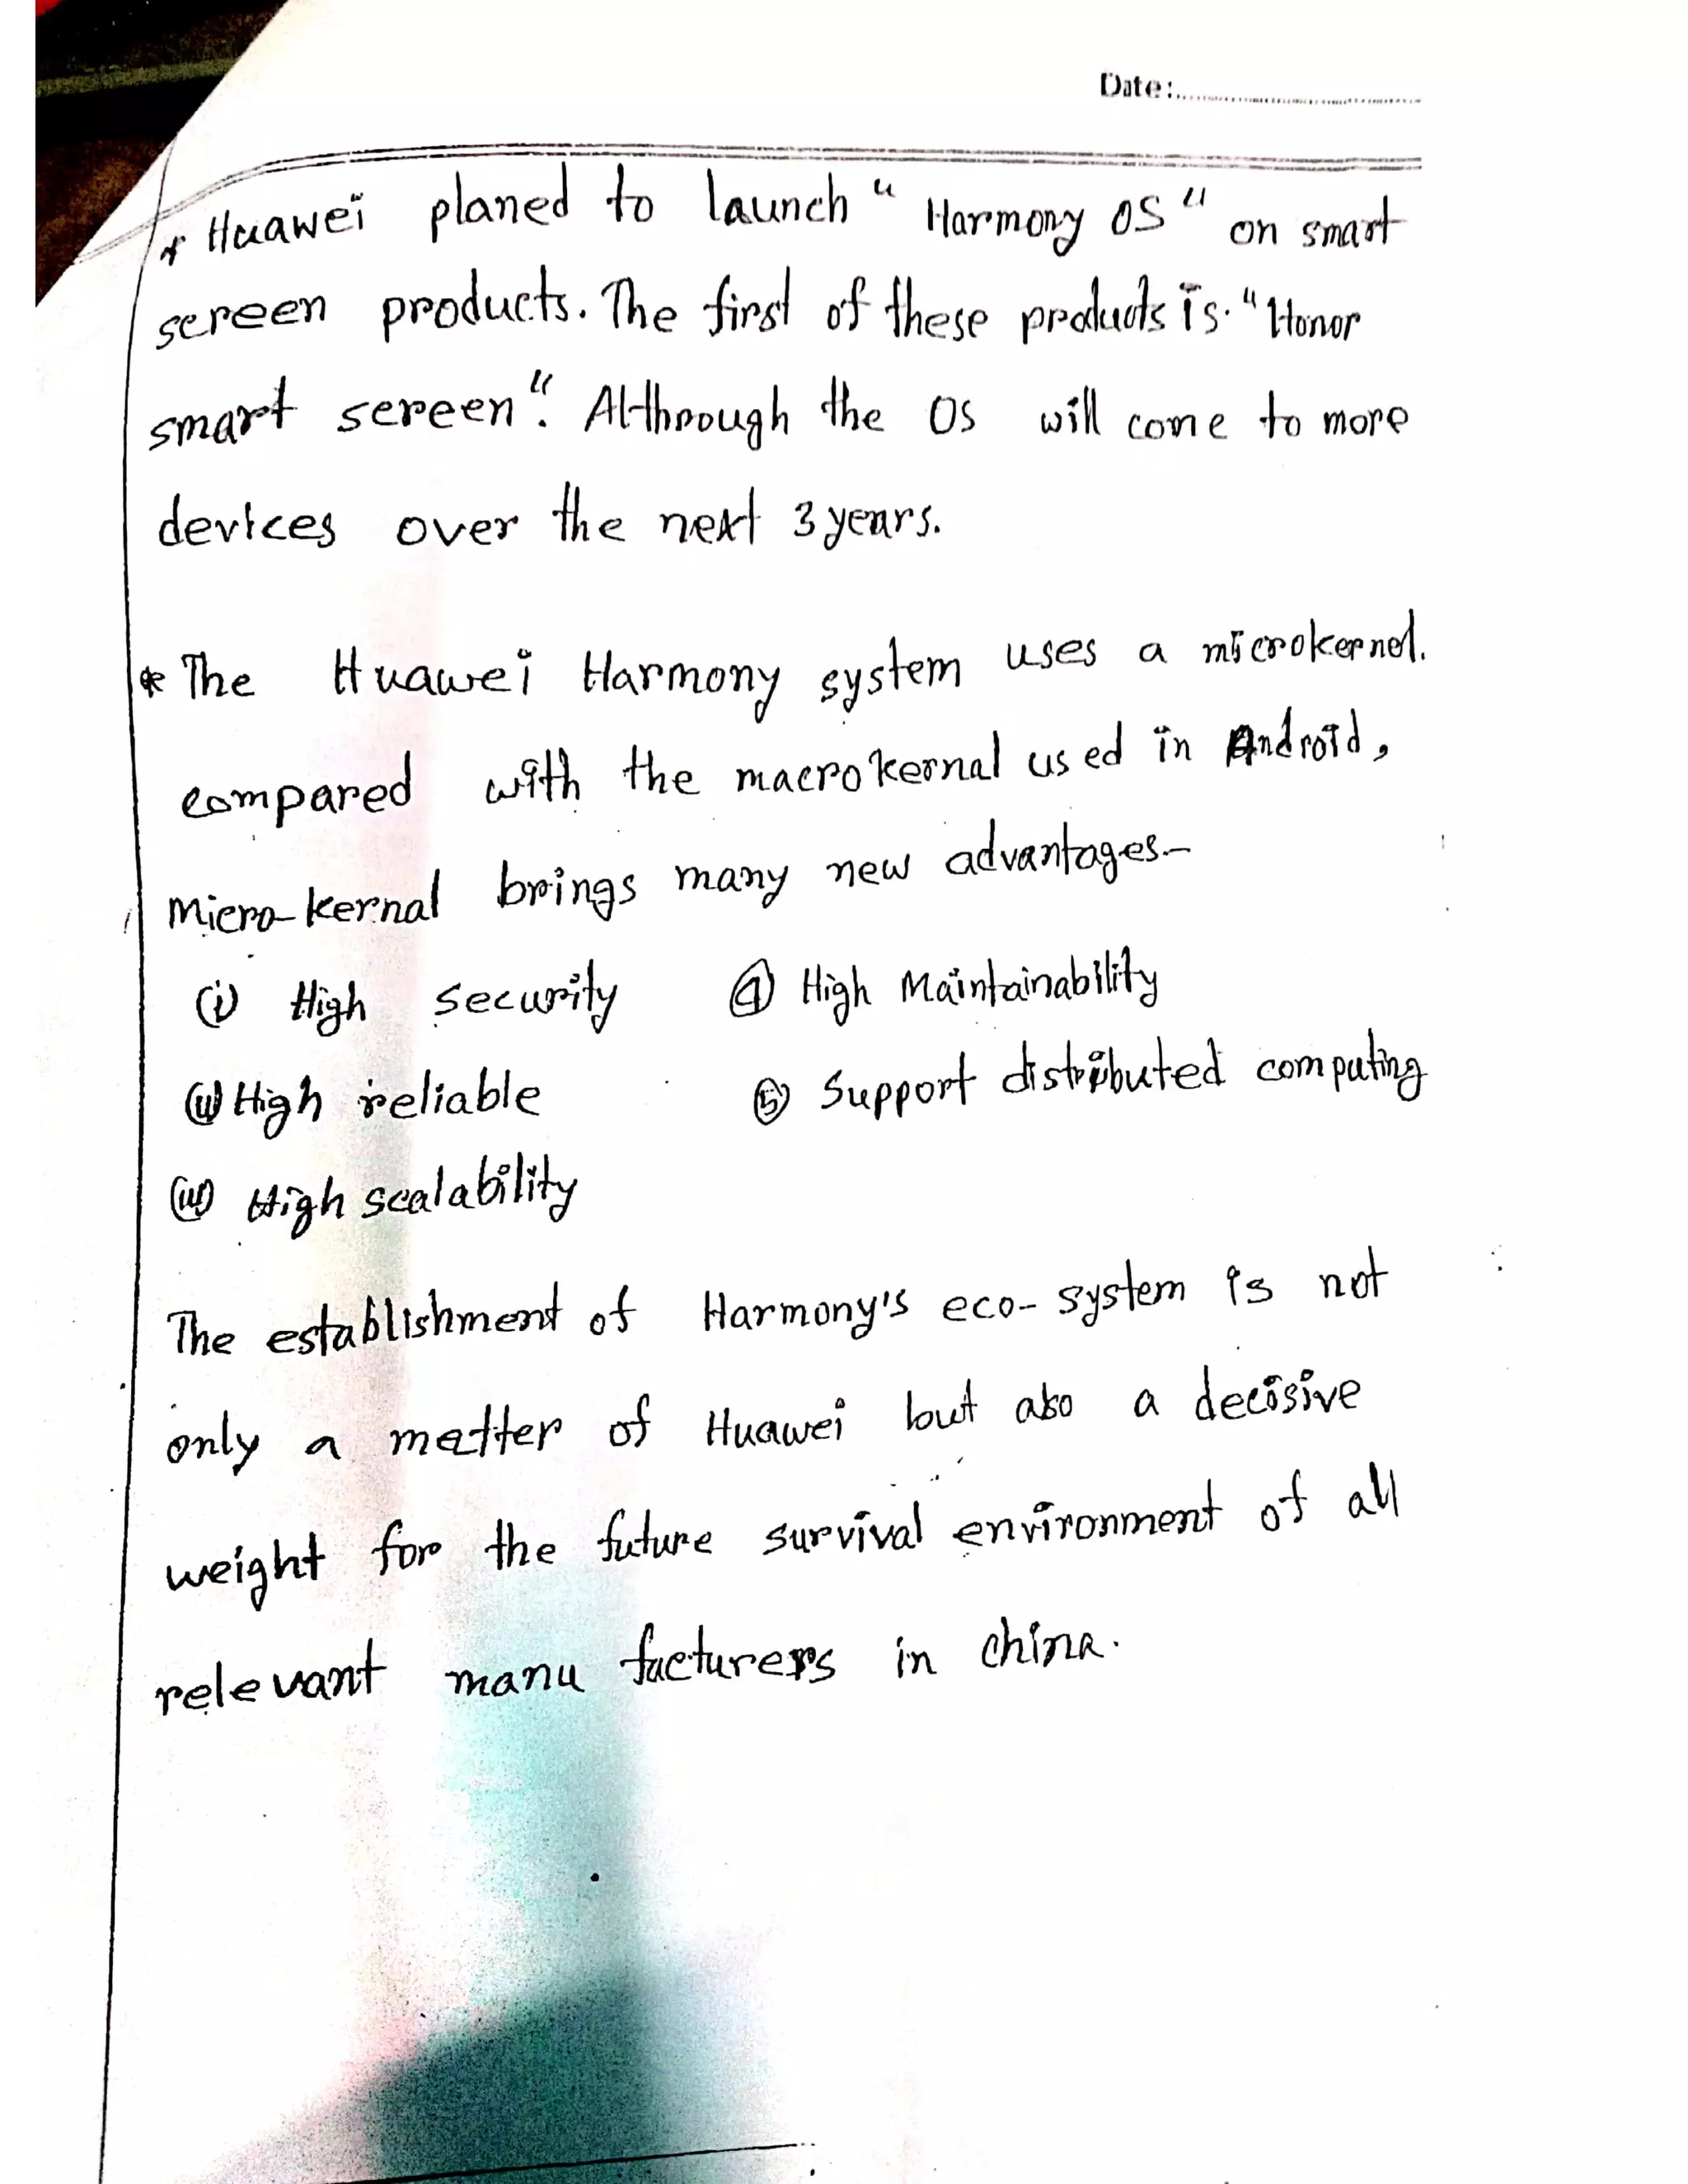 Date:
* Huawei planed to launch "Harmony OS" on smart
screen products. The first of these products is "Honor
smart screen". Althrough the OS will come to more
devices over the next 3 years.
* The Huawei Harmony system uses a microkernel.
compared with the macrokernal used in Android,
Micro-kernal brings many new advantages-
(i) High security ④ High Maintainability
(ii) High reliable ⑤ Support distributed computing
(iii) High scalability
The establishment of Harmony's eco-system is not
only a metter of Huawei but also a decisive
weight for the future survival environment of all
relevant manufacturers in china.